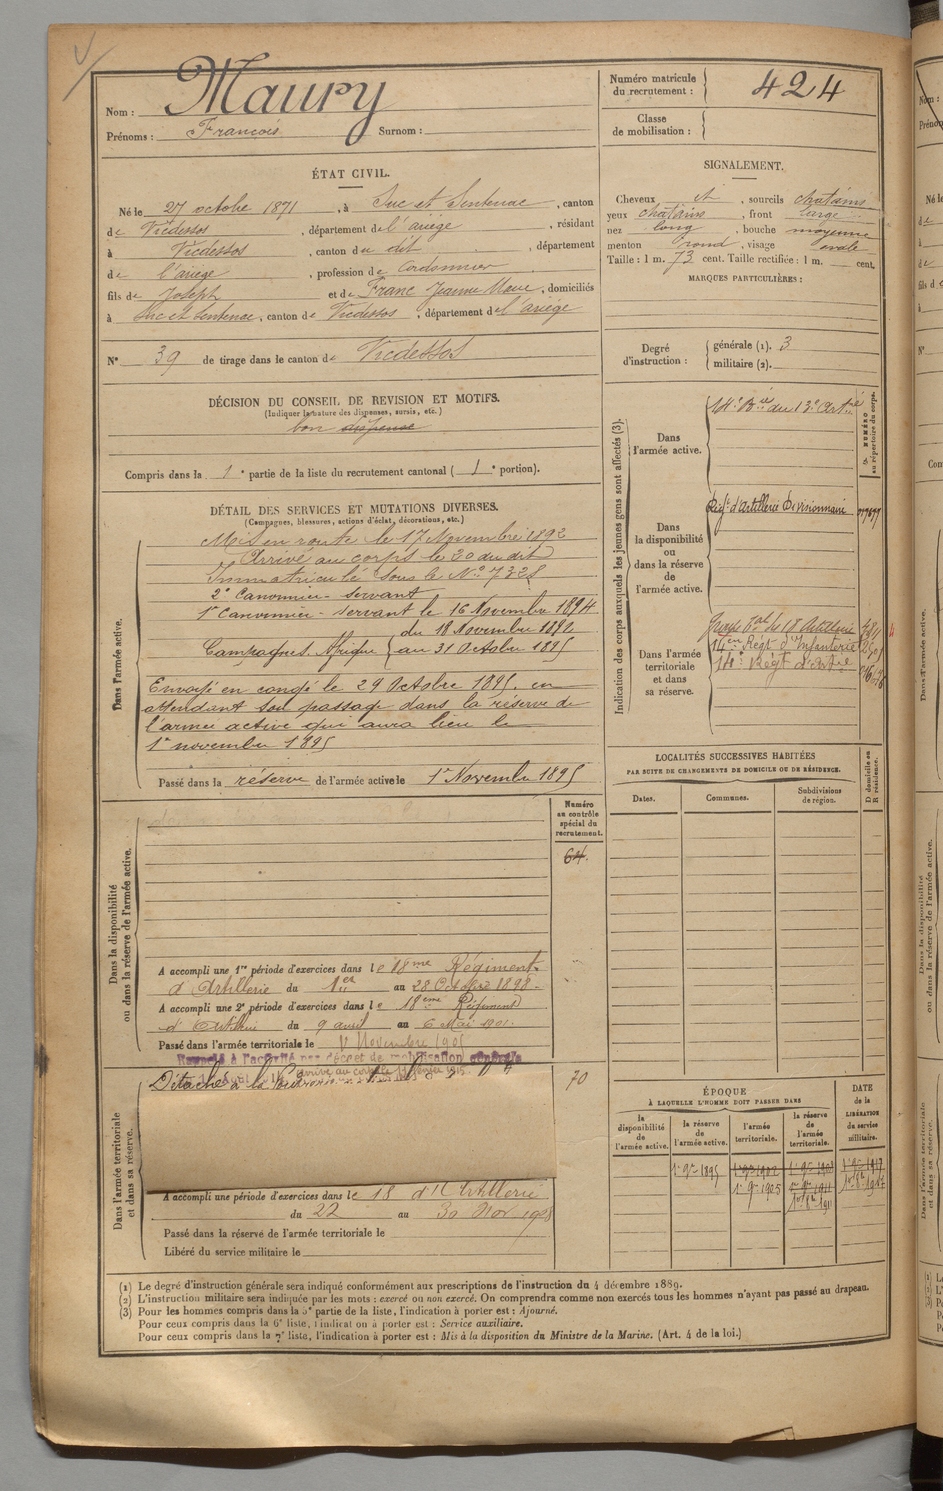 Nom : Maury
Prénoms : François Surnom :
Numéro matricule du recrutement : 424
Classe de mobilisation :
ÉTAT CIVIL.
Né le 27 octobre 1871, à Suc et Sentenac, canton
de Vicdessos, département de l'ariège, résidant
à Vicdessos, canton du dit, département
de l'ariège, profession de Cordonnier
fils de Joseph et de Franc Jeanne Marie, domiciliés
à Suc et Sentenac, canton de Vicdessos, département de l'ariège
N° 39 de tirage dans le canton de Vicdessos
SIGNALEMENT.
Cheveux et, sourcils chatains
yeux chatains, front large
nez long, bouche moyenne
menton rond, visage ovale
Taille : 1 m. 73 cent. Taille rectifiée : 1 m. cent.
MARQUES PARTICULIÈRES :
Degré d'instruction :
générale (1). 3
militaire (2).
DÉCISION DU CONSEIL DE REVISION ET MOTIFS.
(Indiquer la nature des dispenses, sursis, etc.)
bon dispense
Compris dans la 1e partie de la liste du recrutement cantonal (1e portion).
DÉTAIL DES SERVICES ET MUTATIONS DIVERSES.
(Campagnes, blessures, actions d'éclat, décorations, etc.)
Dans l'armée active.
Mis en route le 17 Novembre 1892
Arrivé au corps le 20 du dit
Immatriculé sous le N° 7328
2e Canonnier-servant
1er Canonnier-servant le 16 Novembre 1894
Campagnes Afrique
du 18 Novembre 1892
au 31 Octobre 1895
Envoyé en congé le 29 Octobre 1895, en
attendant son passage dans la réserve de
l'armée active qui aura lieu le
1er novembre 1895
Passé dans la réserve de l'armée active le 1er Novembre 1895
Indication des corps auxquels les jeunes gens sont affectés (3).
NUMÉRO au répertoire du corps.
Dans l'armée active.
14e Bie du 13e Artie
Dans la disponibilité ou dans la réserve de l'armée active.
Régt d'Artillerie Divisionnaire
Dans l'armée territoriale et dans sa réserve.
Groupe Tal du 18 Artillerie
14e Régt d'Infanterie
118e Régt d'Artie
LOCALITÉS SUCCESSIVES HABITÉES
PAR SUITE DE CHANGEMENTS DE DOMICILE OU DE RÉSIDENCE.
Dates. Communes. Subdivisions de région.
D domicile ou R résidence.
Dans la disponibilité ou dans la réserve de l'armée active.
Numéro au contrôle spécial du recrutement.
64.
A accompli une 1re période d'exercices dans le 18me Régiment
d'Artillerie du 1er au 28 Octobre 1898.
A accompli une 2e période d'exercices dans le 18eme Régiment
d'Artillerie du 9 avril au 6 Mai 1901.
Passé dans l'armée territoriale le 1r Novembre 1905
Rappelé à l'activité par décret de mobilisation générale
Détaché à la
70
Dans l'armée territoriale et dans sa réserve.
A accompli une période d'exercices dans le 18 d'Artillerie
du 22 au 30 Nov 1908
Passé dans la réserve de l'armée territoriale le
Libéré du service militaire le
ÉPOQUE
À LAQUELLE L'HOMME DOIT PASSER DANS
la disponibilité de l'armée active.
la réserve de l'armée active.
l'armée territoriale.
la réserve de l'armée territoriale.
DATE de la LIBÉRATION du service militaire.
1r 9re 1895
1r 9re 1905
(1) Le degré d'instruction générale sera indiqué conformément aux prescriptions de l'instruction du 4 décembre 1889.
(2) L'instruction militaire sera indiquée par les mots : exercé ou non exercé. On comprendra comme non exercés tous les hommes n'ayant pas passé au drapeau.
(3) Pour les hommes compris dans la 5e partie de la liste, l'indication à porter est : Ajourné.
Pour ceux compris dans la 6e liste, l'indication à porter est : Service auxiliaire.
Pour ceux compris dans la 7e liste, l'indication à porter est : Mis à la disposition du Ministre de la Marine. (Art. 4 de la loi.)